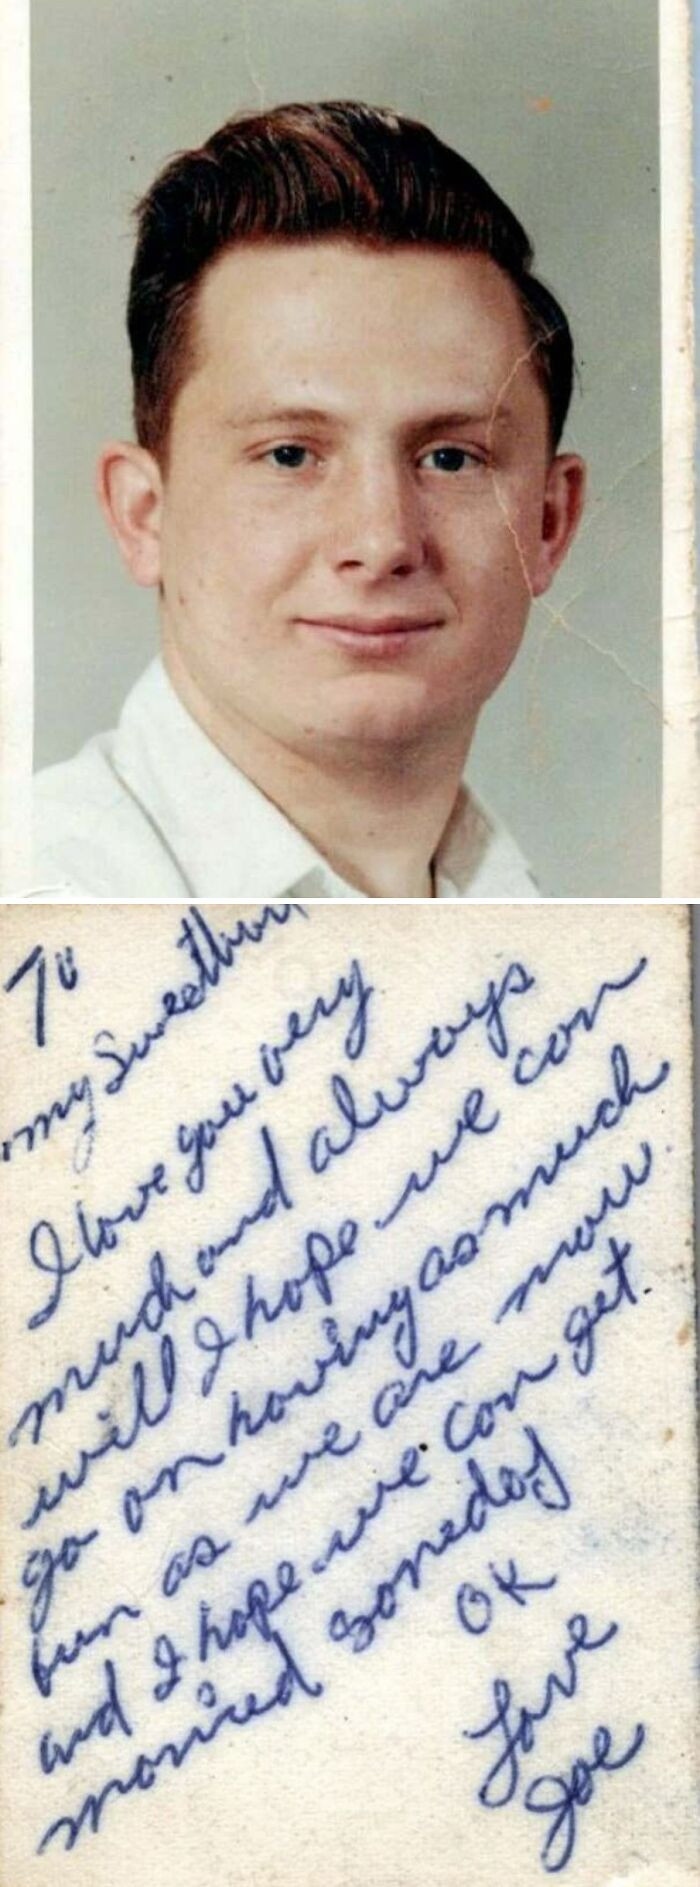 To
my Sweetheart
I love you very
much and always
will I hope we can
go on having as much
fun as we are now
and I hope we can get
married someday
OK
Love
Joe